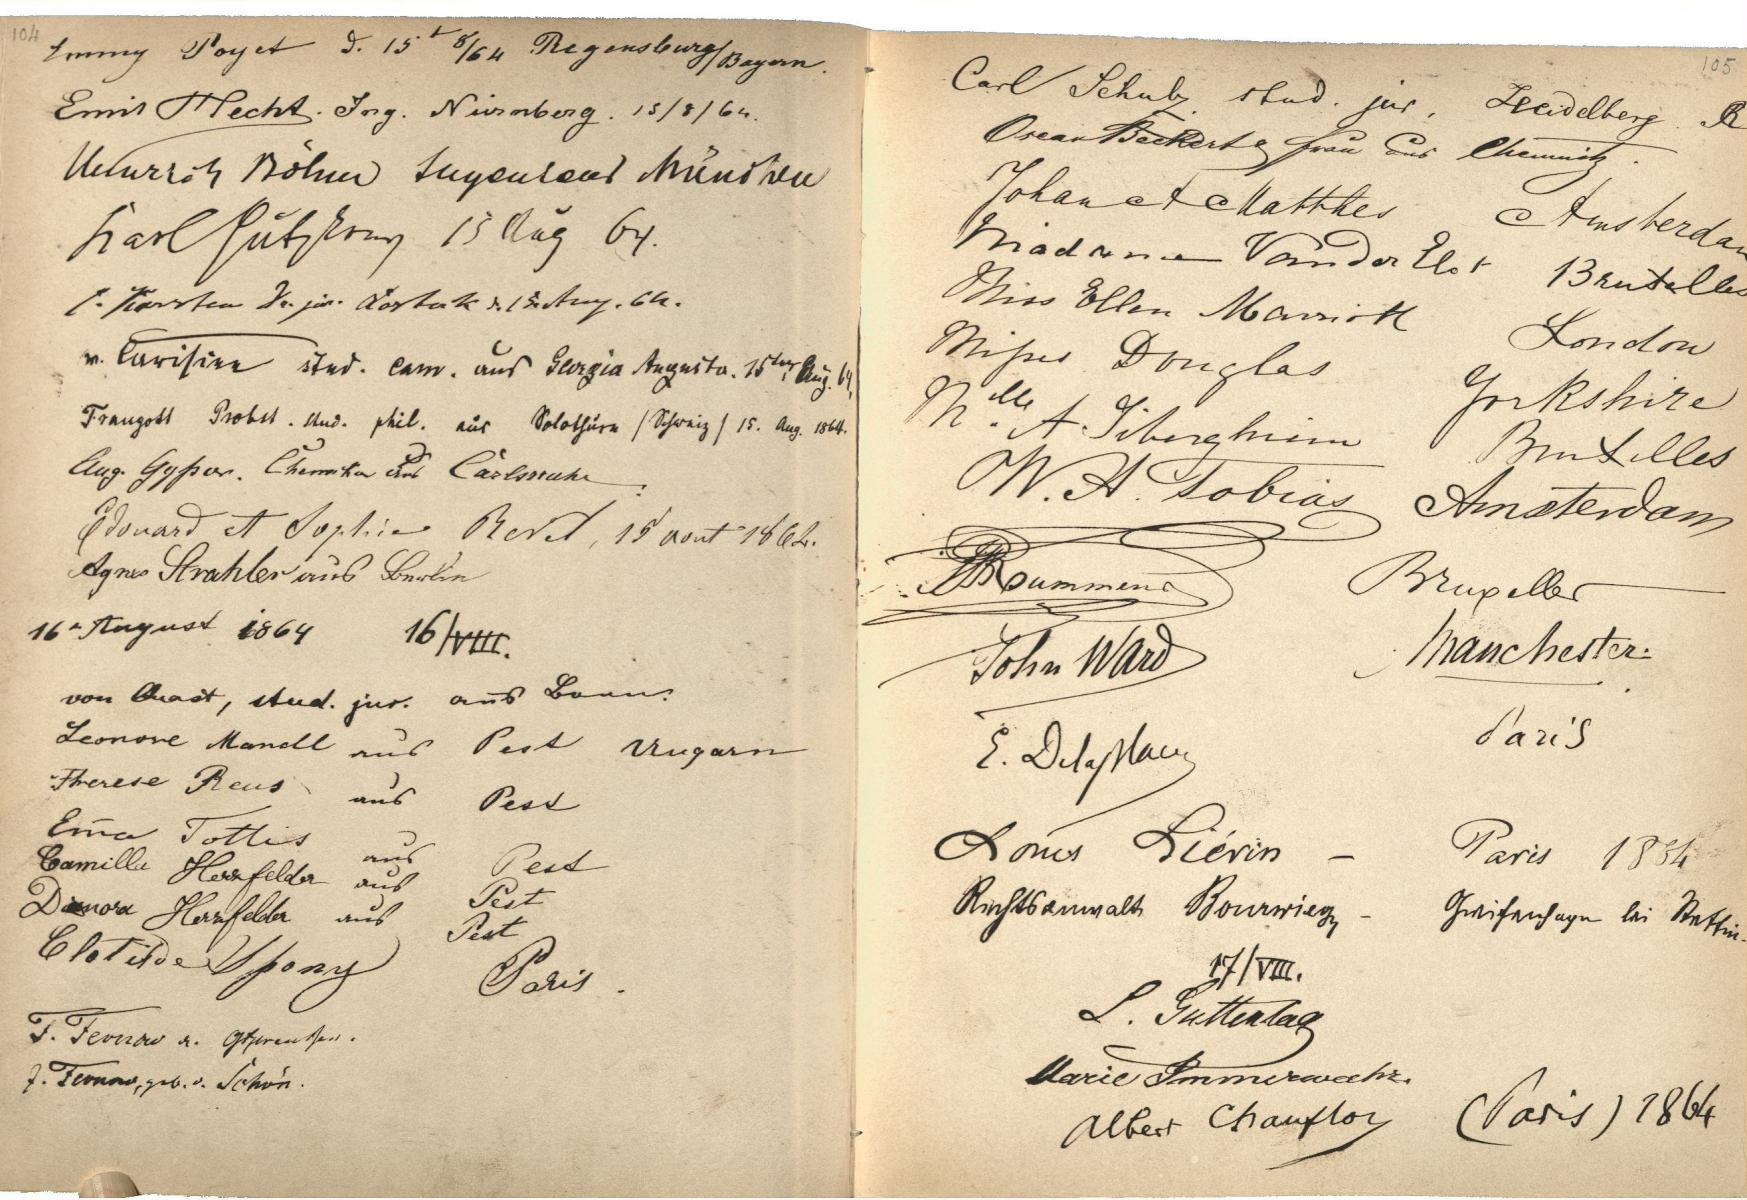 104
Emmy Poyet d. 15t 8/64 Regensburg/Bayern.
Emil Hecht. Ing. Nürnberg. 15/8/64.
Heinrich Böhm Ingenieur München
Karl 15 Aug 64.
Karsten Dr. jur. Rostock d. 15t. Aug. 64.
v. stud. cam. aus Georgia Augusta. 15ten Aug. 64
Traugott Probst. stud. phil. aus Solothurn /Schweiz/ 15. Aug. 1864.
Aug. Gyßer. Chemiker aus Carlsruhe.
Edouard et Sophie 15 aout 1864.
Agnes Strahler aus Berlin
16n August 1864 16/VIII.
von Quast, stud. jur. aus Bonn.
Leonore Mandl aus Pest Ungarn
Therese Reus aus Pest
Em̄a Tottis aus Pest
Camilla Herzfelder aus Pest
Herzfelder aus Pest
Clotilde Spony Paris.
F. Fernow a. Ostpreußen.
F. Fernow, geb. v. Schön.
105
Carl Schulz. stud. jur. Heidelberg.
Oscar Beckert & frau aus Chemnitz.
Johan A Matthes Amsterdam
Madame Van der Elst Bruxelles
Miss Ellen Marriott London
Misses Douglas Yorkshire
Mlle A. Siberghien Bruxelles
W. A. Tobias Amsterdam
Rummens Bruxelles
John Ward Manchester.
E. Delaplace Paris
Louis Liévin - Paris 1864
Rechtsanwalt Bourwieg - Greifenhagen bei Stettin.
17/VIII.
L. Guttentag
Marie Immerwahr.
Albert Chauffour (Paris) 1864